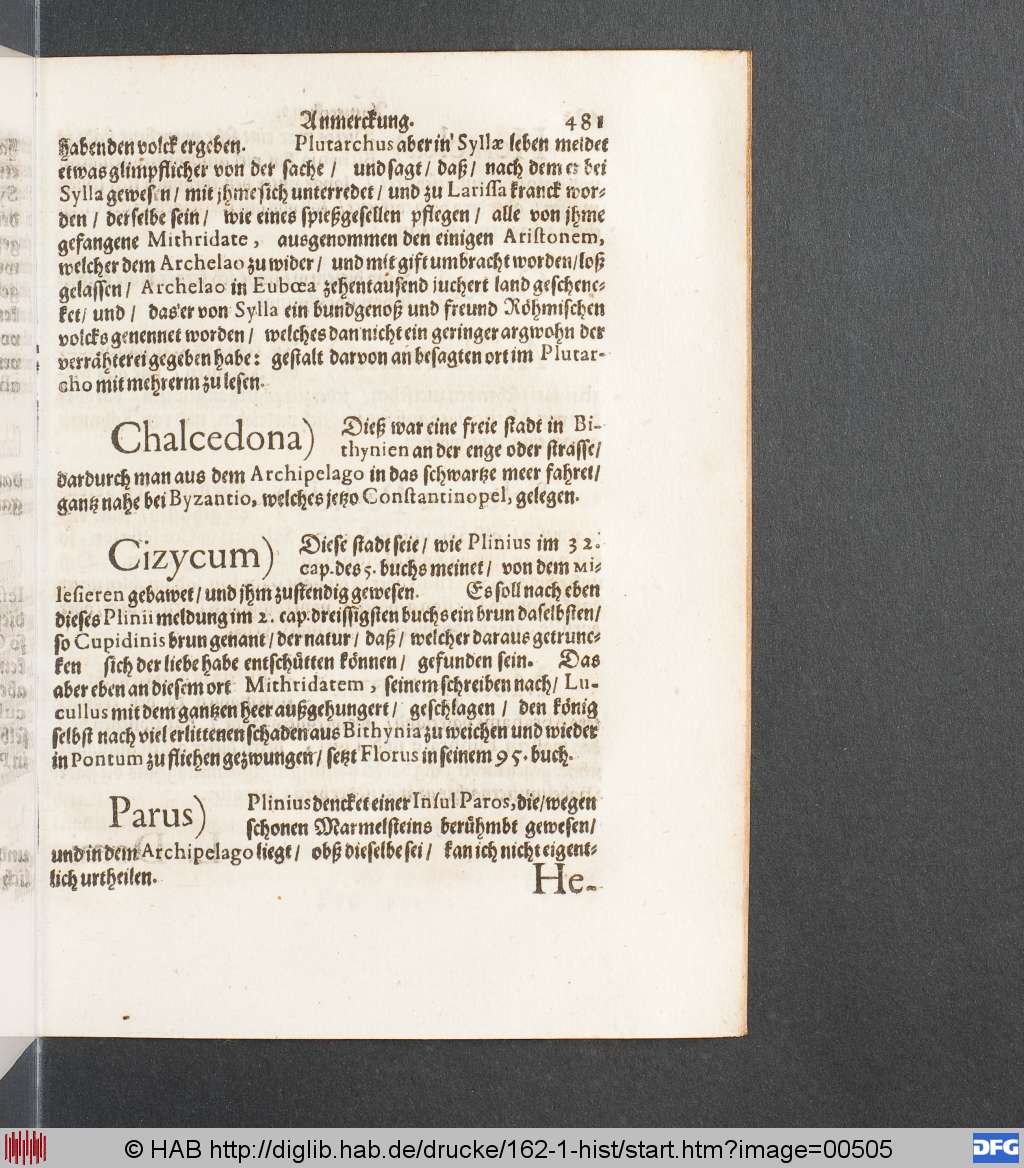 Anmerckung. 481
habenden volck ergeben. Plutarchus aber in Syllæ leben meldet
etwas glimpflicher von der sache / und sagt / daß / nach dem er bei
Sylla gewesen / mit jhme sich unterredet / und zu Larissa kranck wor-
den / derselbe sein / wie eines spießgesellen pflegen / alle von jhme
gefangene Mithridate, ausgenommen den einigen Aristonem,
welcher dem Archelao zu wider / und mit gift umbracht worden / loß
gelassen / Archelao in Eubœa zehentausend juchert land geschenc-
ket / und / das'er von Sylla ein bundgenoß und freund Römischen
volcks genennet worden / welches dan nicht ein geringer argwohn der
verrähterei gegeben habe: gestalt darvon an besagten ort im Plutar-
cho mit mehrerm zu lesen.
Chalcedona) Dieß war eine freie stadt in Bi-
thynien an der enge oder strasse /
dardurch man aus dem Archipelago in das schwartze meer fahret /
gantz nahe bei Byzantio, welches jetzo Constantinopel, gelegen.
Cizycum) Diese stadt seie / wie Plinius im 32.
cap. des 5. buchs meinet / von dem Mi-
lesieren gebawet / und jhm zustendig gewesen. Es soll nach eben
dieses Plinii meldung im 2. cap. dreissigsten buchs ein brun daselbsten /
so Cupidinis brun genant / der natur / daß / welcher daraus getrunc-
ken sich der liebe habe entschütten können / gefunden sein. Das
aber eben an diesem ort Mithridatem, seinem schreiben nach / Lu-
cullus mit dem gantzen heer außgehungert / geschlagen / den könig
selbst nach viel erlittenen schaden aus Bithynia zu weichen und wieder
in Pontum zu fliehen gezwungen / setzt Florus in seinem 95. buch.
Parus) Plinius dencket einer Insul Paros, die / wegen
schonen Marmelsteins berühmbt gewesen /
und in dem Archipelago liegt / obß dieselbe sei / kan ich nicht eigent-
lich urtheilen.
He-
© HAB http://diglib.hab.de/drucke/162-1-hist/start.htm?image=00505
DFG